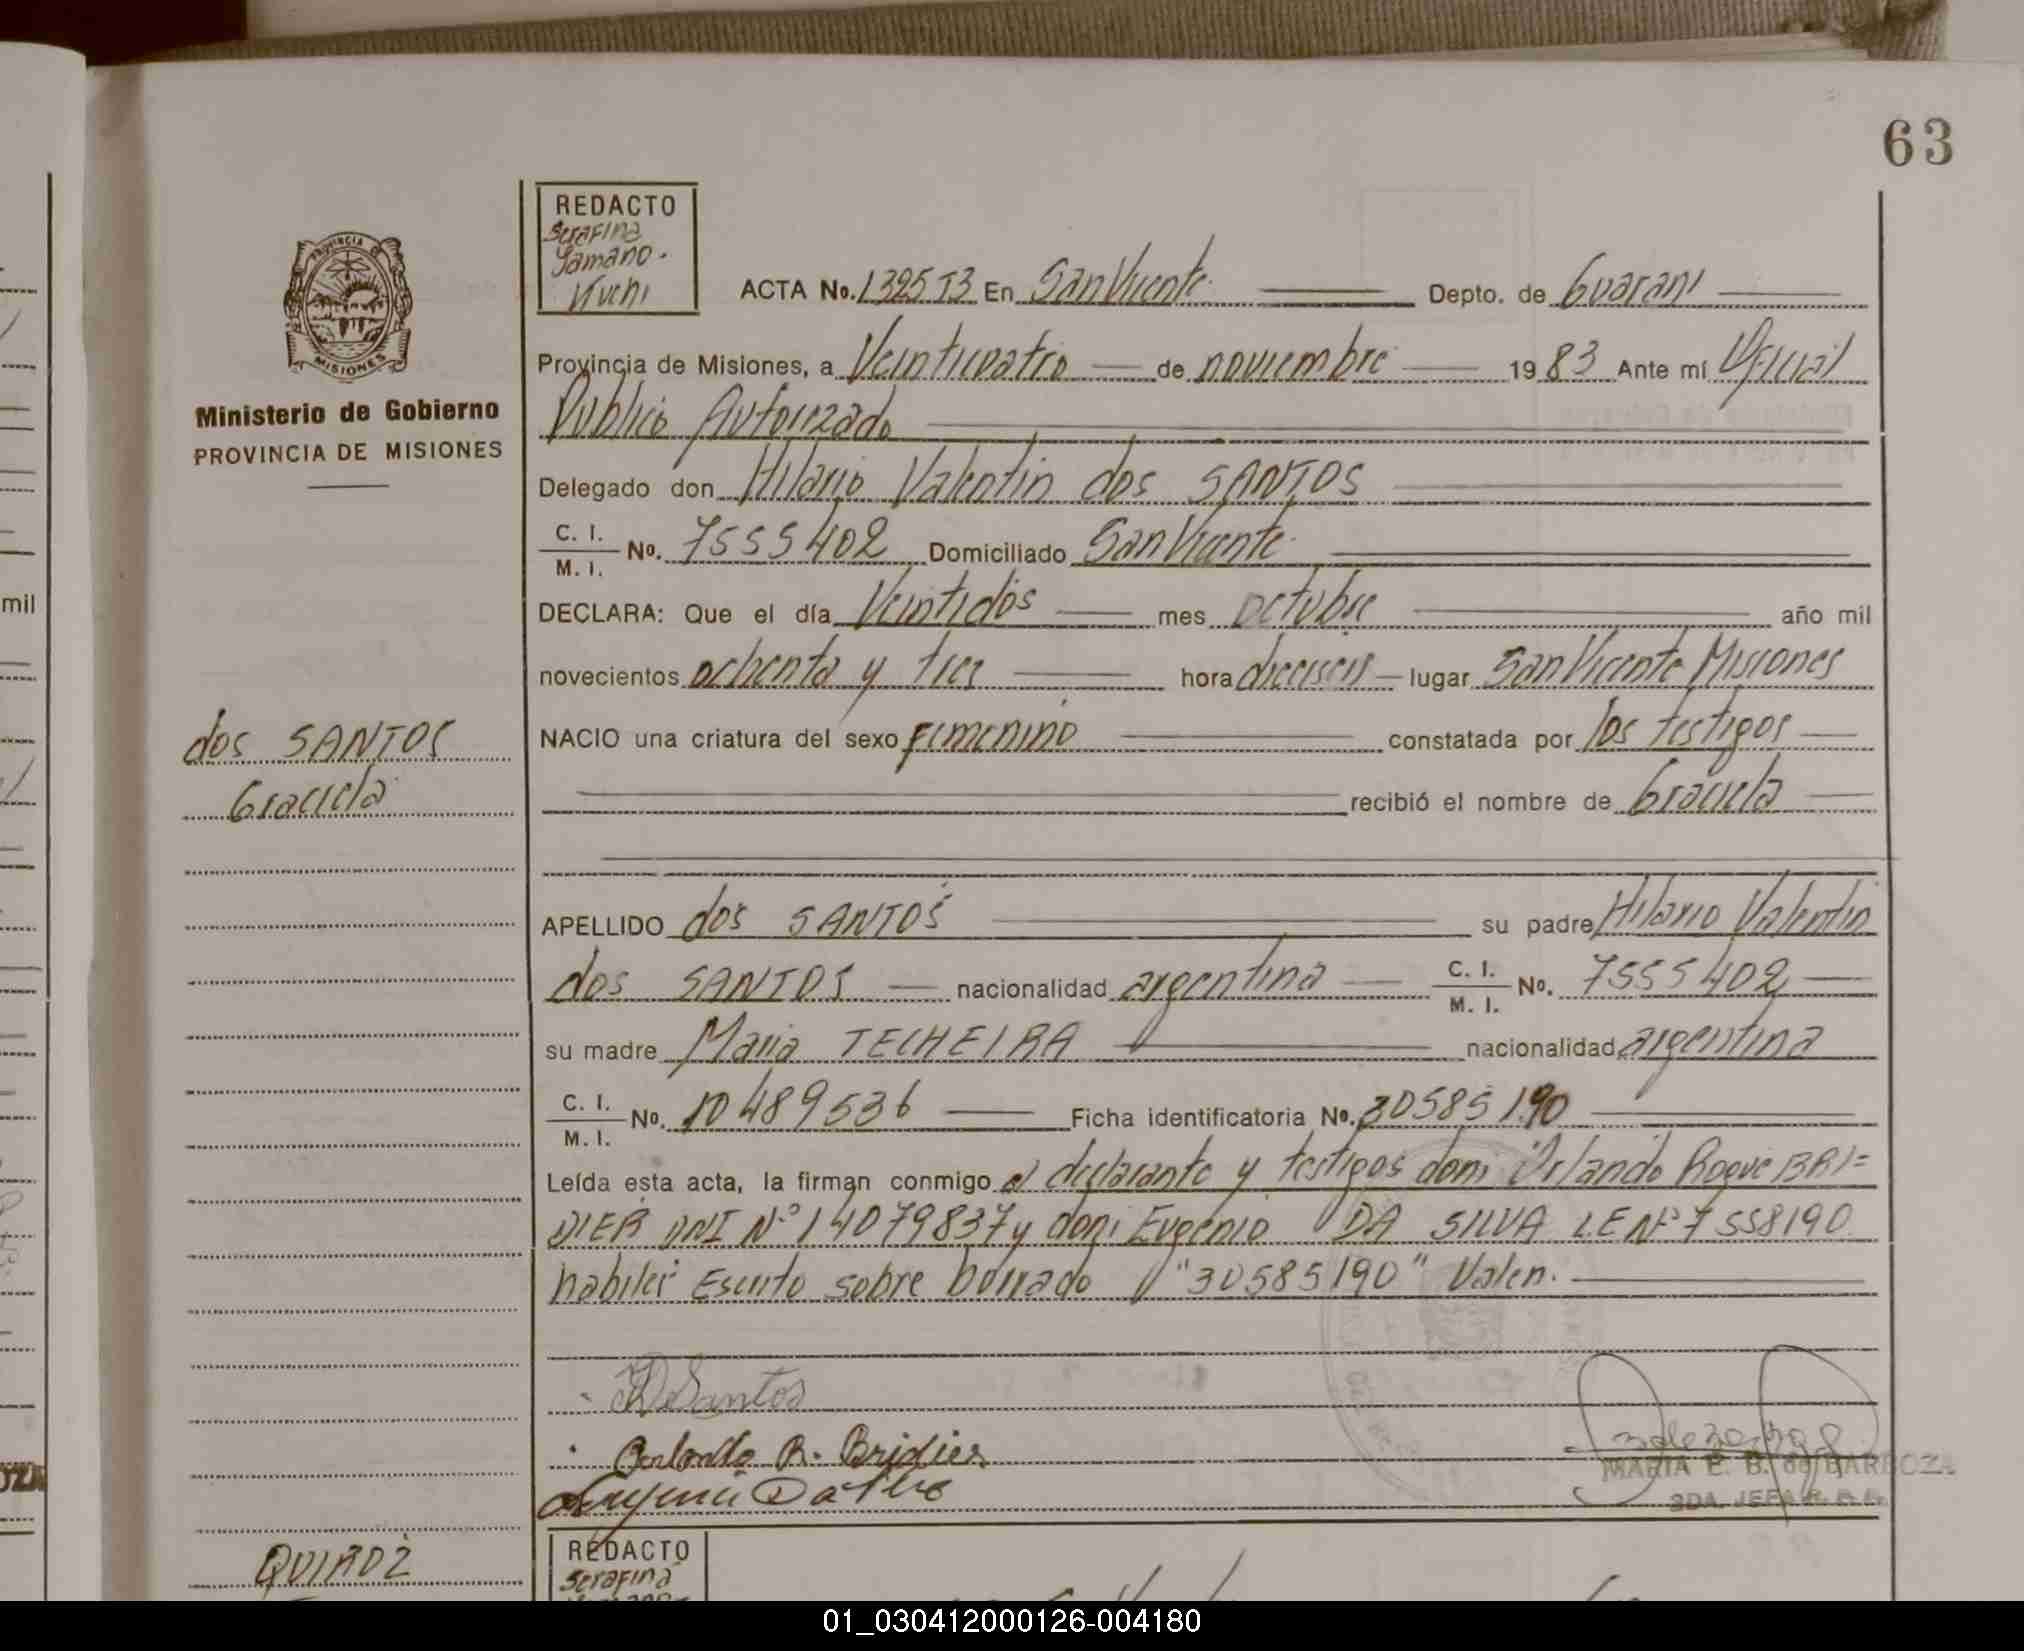 63
REDACTO
Serafina
Yamano-
Kuchi
PROVINCIA DE
MISIONES
Ministerio de Gobierno
PROVINCIA DE MISIONES
ACTA No. 1325 T3 En San Vicente Depto. de Guarani
Provincia de Misiones, a Veinticuatro de noviembre 1983 Ante mí Oficial
Publico Autorizado
Delegado don Hilario Valentin dos SANTOS
C. I.
M. I. No. 7555402 Domiciliado San Vicente
DECLARA: Que el día Veintidos mes octubre año mil
novecientos ochenta y tres hora dieciseis lugar San Vicente Misiones
NACIO una criatura del sexo femenino constatada por los testigos
recibió el nombre de Graciela
dos SANTOS
Graciela
APELLIDO dos SANTOS su padre Hilario Valentin
dos SANTOS nacionalidad argentina C. I.
M. I. No. 7555402
su madre Maria TECHEIRA nacionalidad argentina
C. I.
M. I. No. 10489536 Ficha identificatoria No. 30585190
Leída esta acta, la firman conmigo el declarante y testigos don: Orlando Roque BRI=
DIER DNI Nº 14079837 y don: Eugenio DA SILVA LE Nº 7558190
habiles Escrito sobre borrado "30585190" Valen.
Santos
Orlando R. Bridier
MARIA E. B. de BARBOZA
2DA. JEFA
QUIROZ
REDACTO
Serafina
mil
01_030412000126-004180